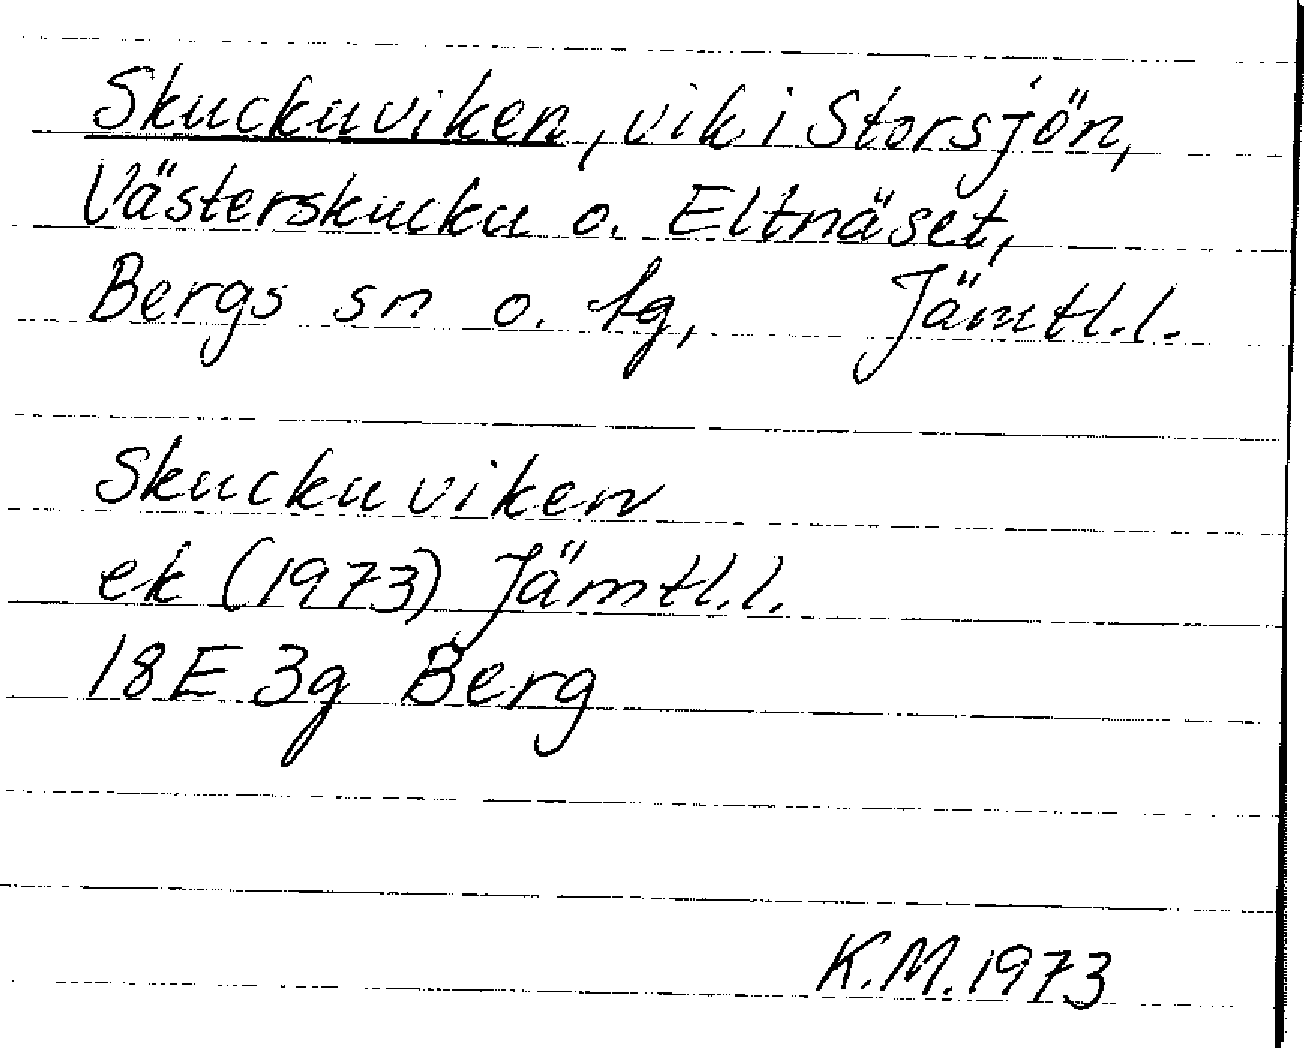 Skuckuviken, vik i Storsjön,
Västerskucku o. Eltnäset,
Bergs sn o. tg, Jämtl.l.
Skuckuviken
ek (1973) Jämtl.l.
18E 3g Berg
K.M. 1973